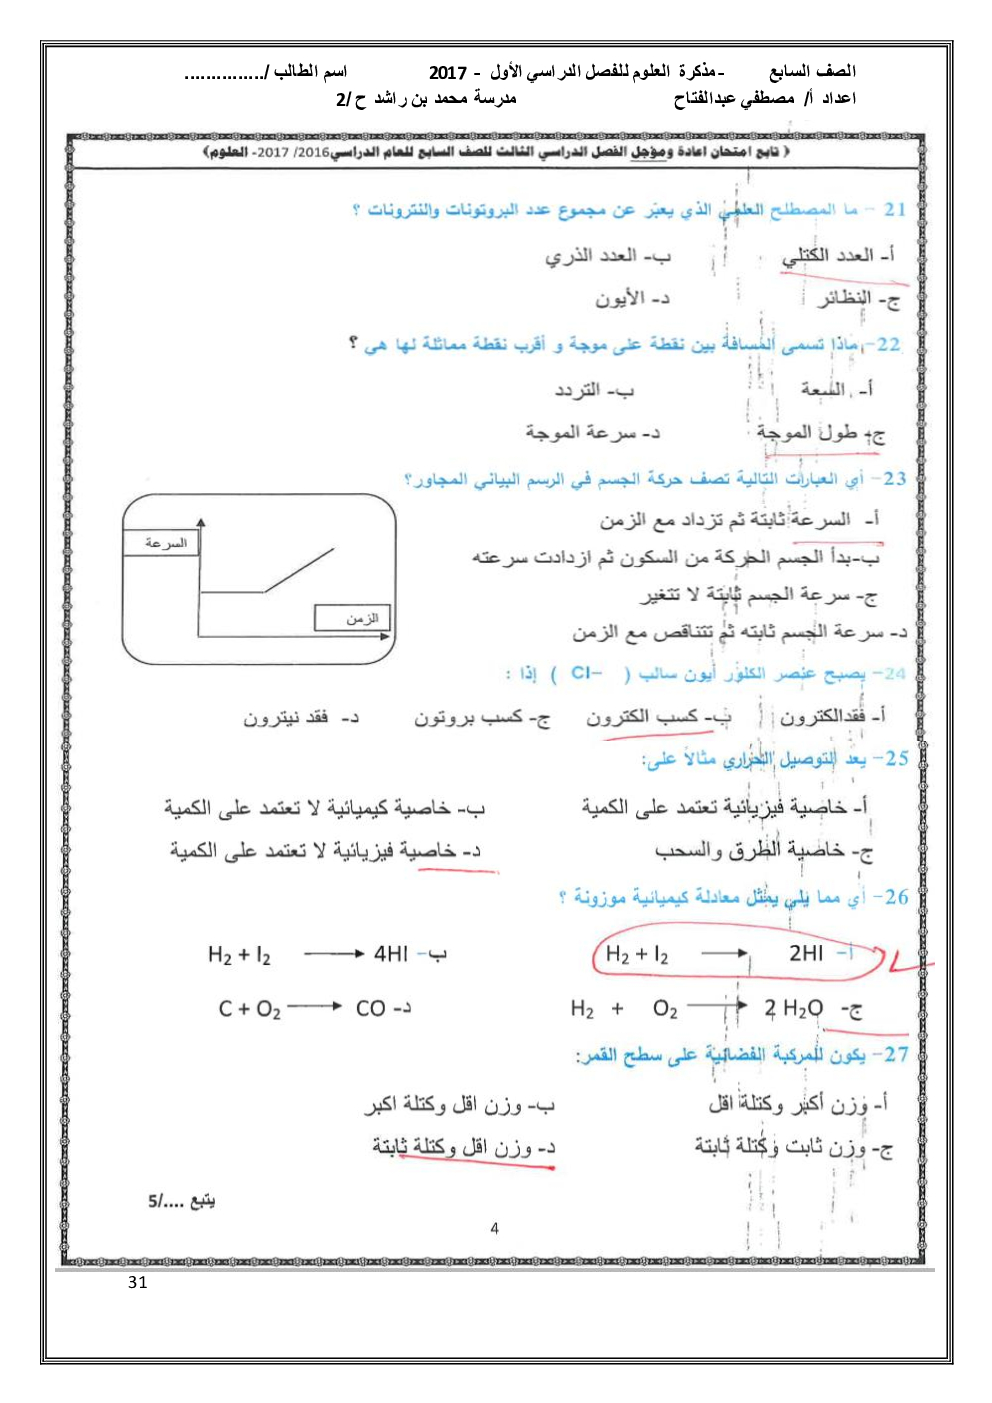 الصف السابع - مذكرة العلوم للفصل الدراسي الأول - 2017 اسم الطالب /...............
اعداد أ/ مصطفي عبدالفتاح مدرسة محمد بن راشد ح/2
( تابع امتحان اعادة ومؤجل الفصل الدراسي الثالث للصف السابع للعام الدراسي2016/ 2017- العلوم)
21 – ما المصطلح العلمي الذي يعبّر عن مجموع عدد البروتونات والنترونات ؟
أ- العدد الكتلي ب- العدد الذري
ج- النظائر د- الأيون
22– ماذا تسمى المسافة بين نقطة على موجة و أقرب نقطة مماثلة لها هي ؟
أ- السعة ب- التردد
ج- طول الموجة د- سرعة الموجة
23– أي العبارات التالية تصف حركة الجسم في الرسم البياني المجاور؟
أ- السرعة ثابتة ثم تزداد مع الزمن
ب-بدأ الجسم الحركة من السكون ثم ازدادت سرعته
ج- سرعة الجسم ثابتة لا تتغير
د- سرعة الجسم ثابته ثم تتناقص مع الزمن
السرعة
الزمن
24– يصبح عنصر الكلور أيون سالب ( Cl– ) إذا :
أ- فقدالكترون ب- كسب الكترون ج- كسب بروتون د- فقد نيترون
25– يعد التوصيل الحراري مثالاً على:
أ- خاصية فيزيائية تعتمد على الكمية ب- خاصية كيميائية لا تعتمد على الكمية
ج- خاصية الطرق والسحب د- خاصية فيزيائية لا تعتمد على الكمية
26– أي مما يلي يمثل معادلة كيميائية موزونة ؟
أ– H₂ + I₂ ⟶ 2HI ب– H₂ + I₂ ⟶ 4HI
ج- H₂ + O₂ ⟶ 2 H₂O د- C + O₂ ⟶ CO
27– يكون للمركبة الفضائية على سطح القمر:
أ- وزن أكبر وكتلة اقل ب- وزن اقل وكتلة اكبر
ج- وزن ثابت وكتلة ثابتة د- وزن اقل وكتلة ثابتة
يتبع ..../5
4
31